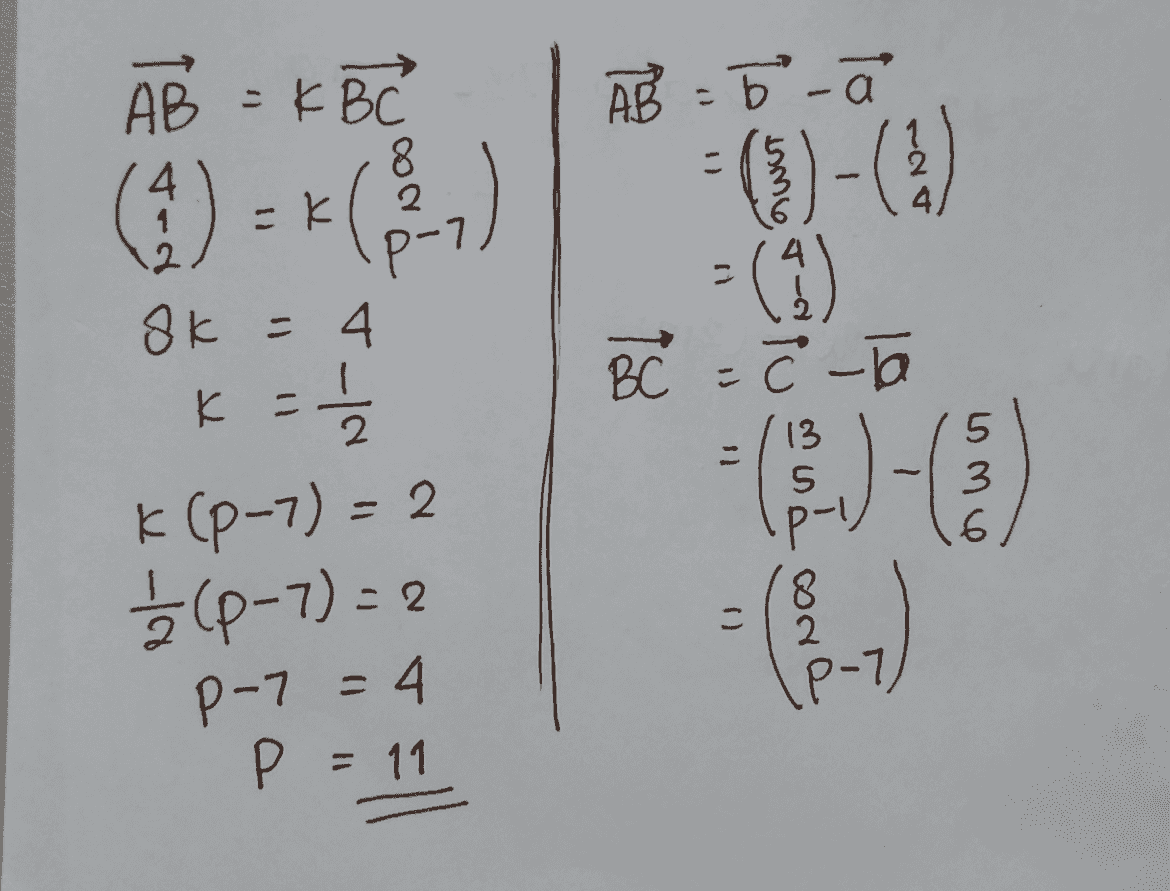 AB = k BC
(4 1 2) = k (8 2 p-7)
8k = 4
k = 1/2
k (p-7) = 2
1/2 (p-7) = 2
p-7 = 4
P = 11
AB = b - a
= (5 3 6) - (1 2 4)
= (4 1 2)
BC = c - b
= (13 5 p-1) - (5 3 6)
= (8 2 p-7)